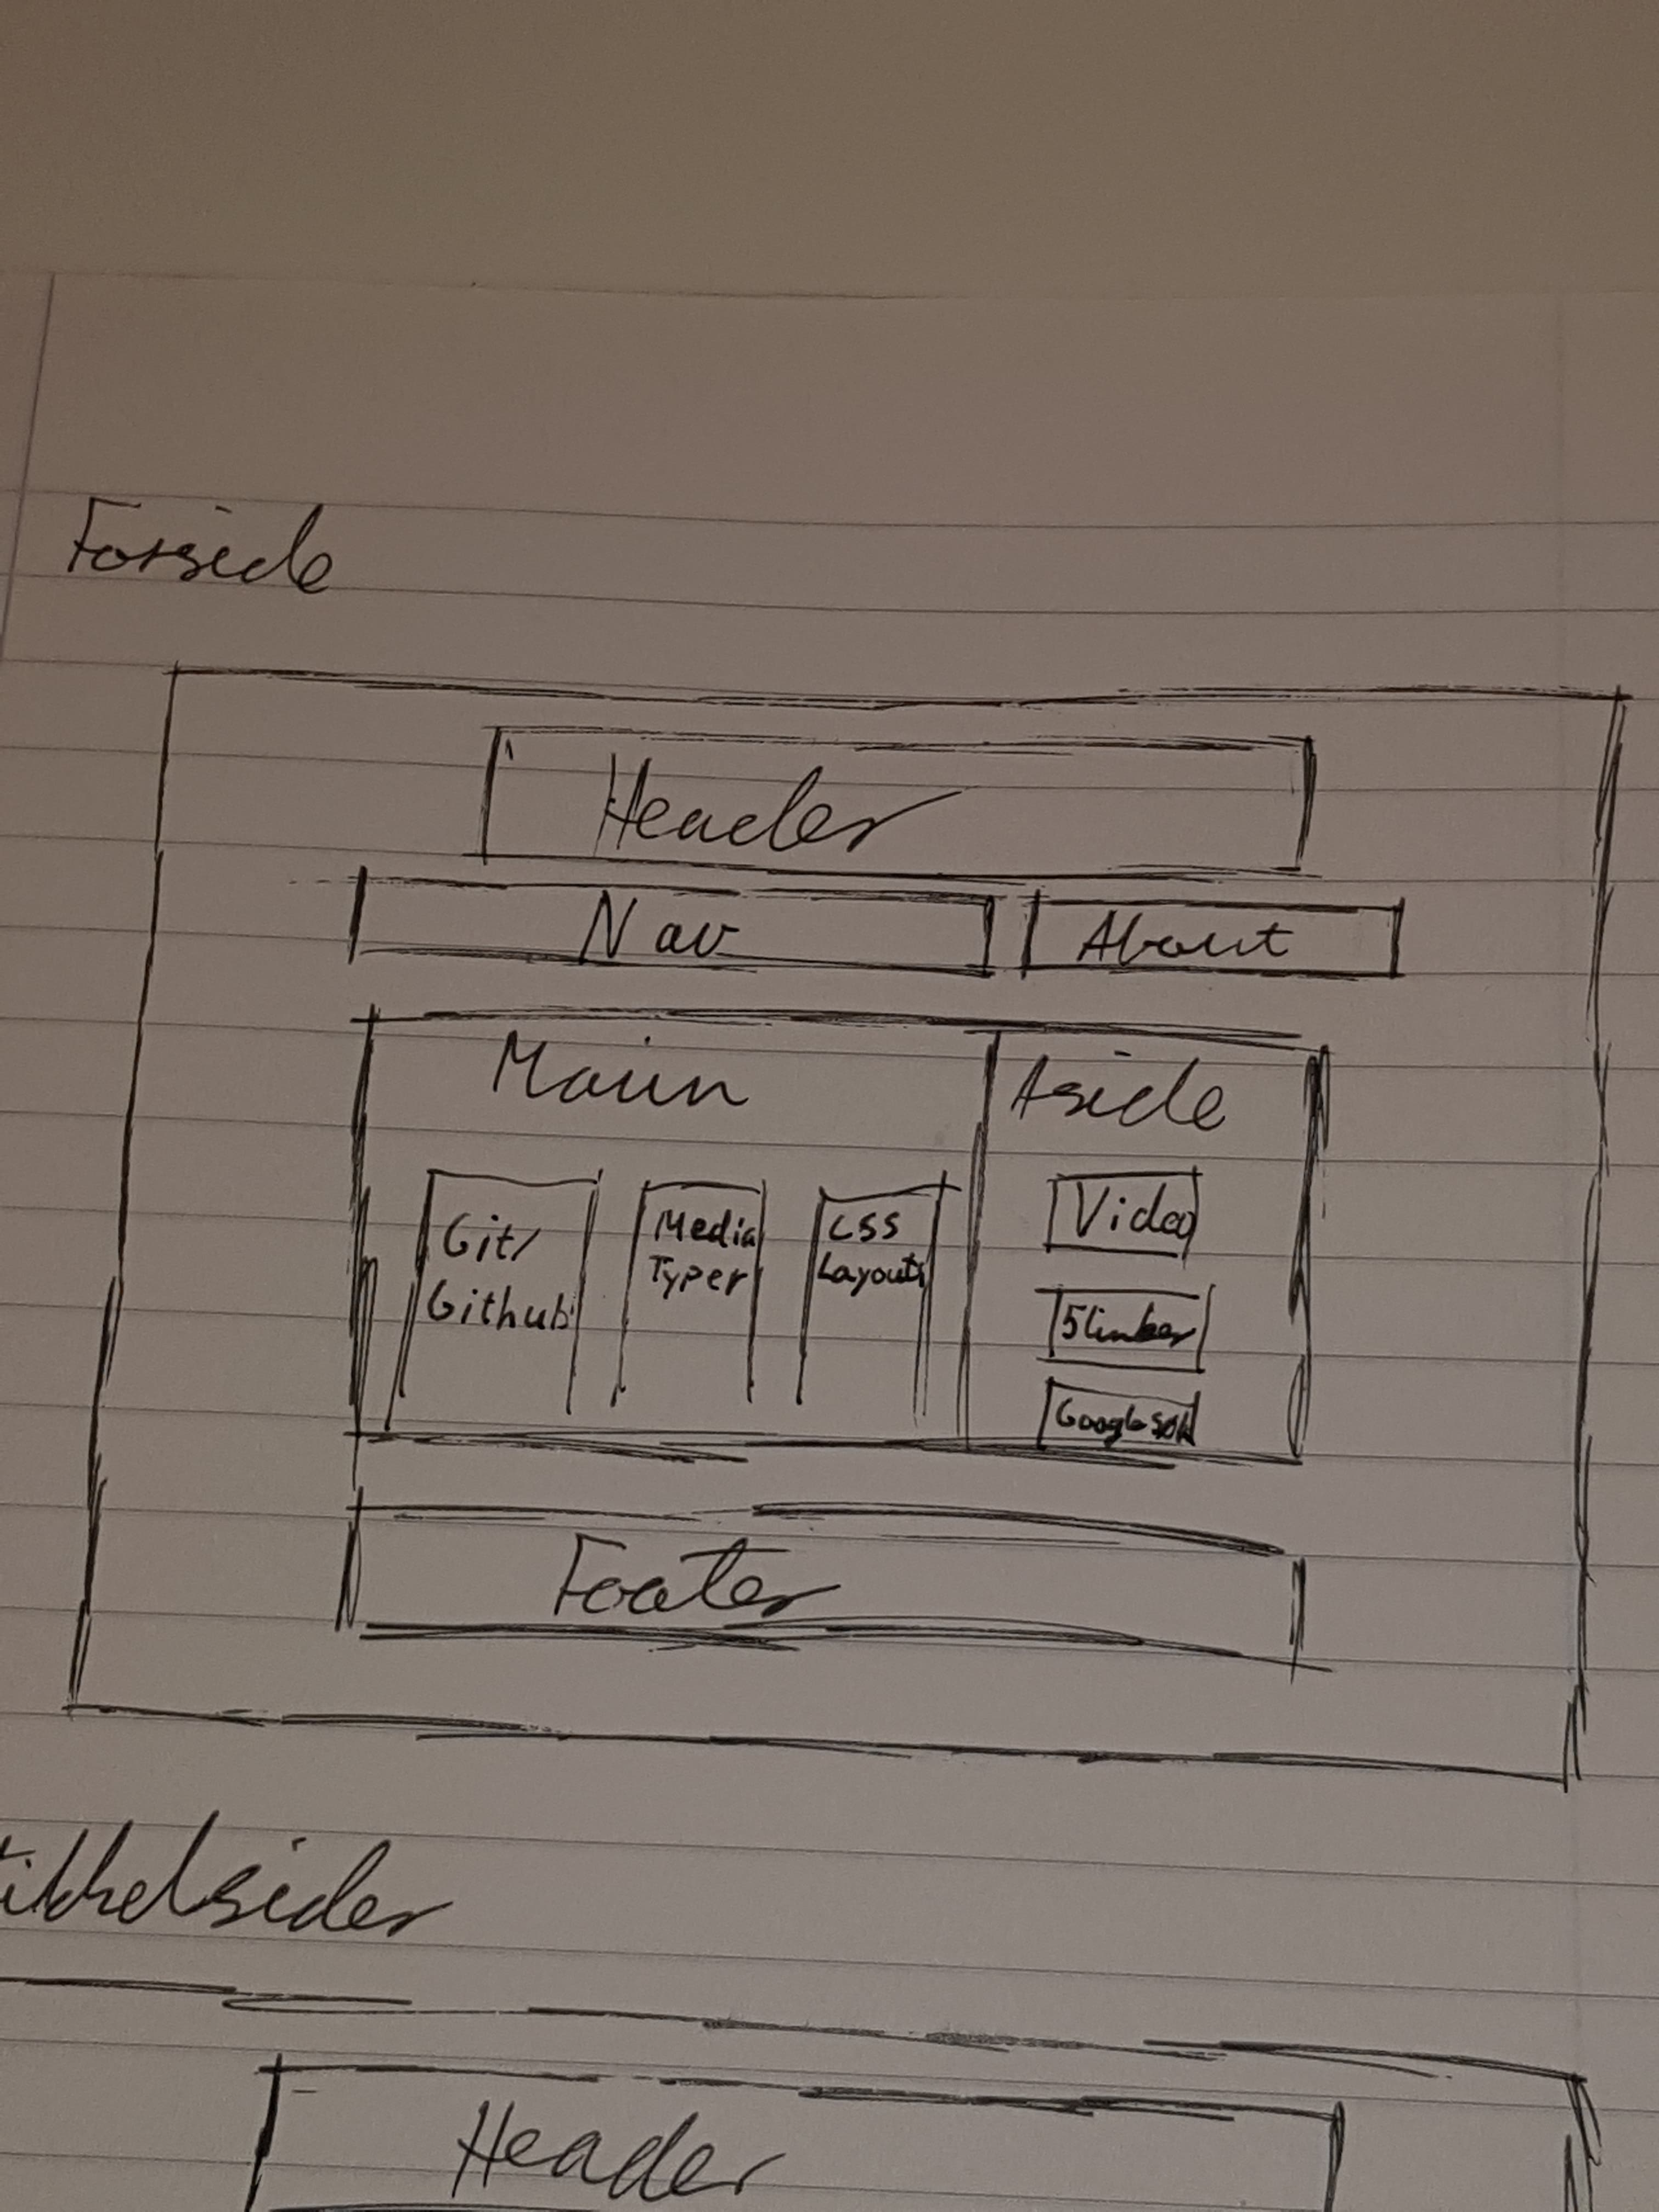 Forside
Header
Nav
About
Main
Aside
Git/
Github
Media
Typer
CSS
Layout
Video
5 linker
Google søk
tikkelsider
Header